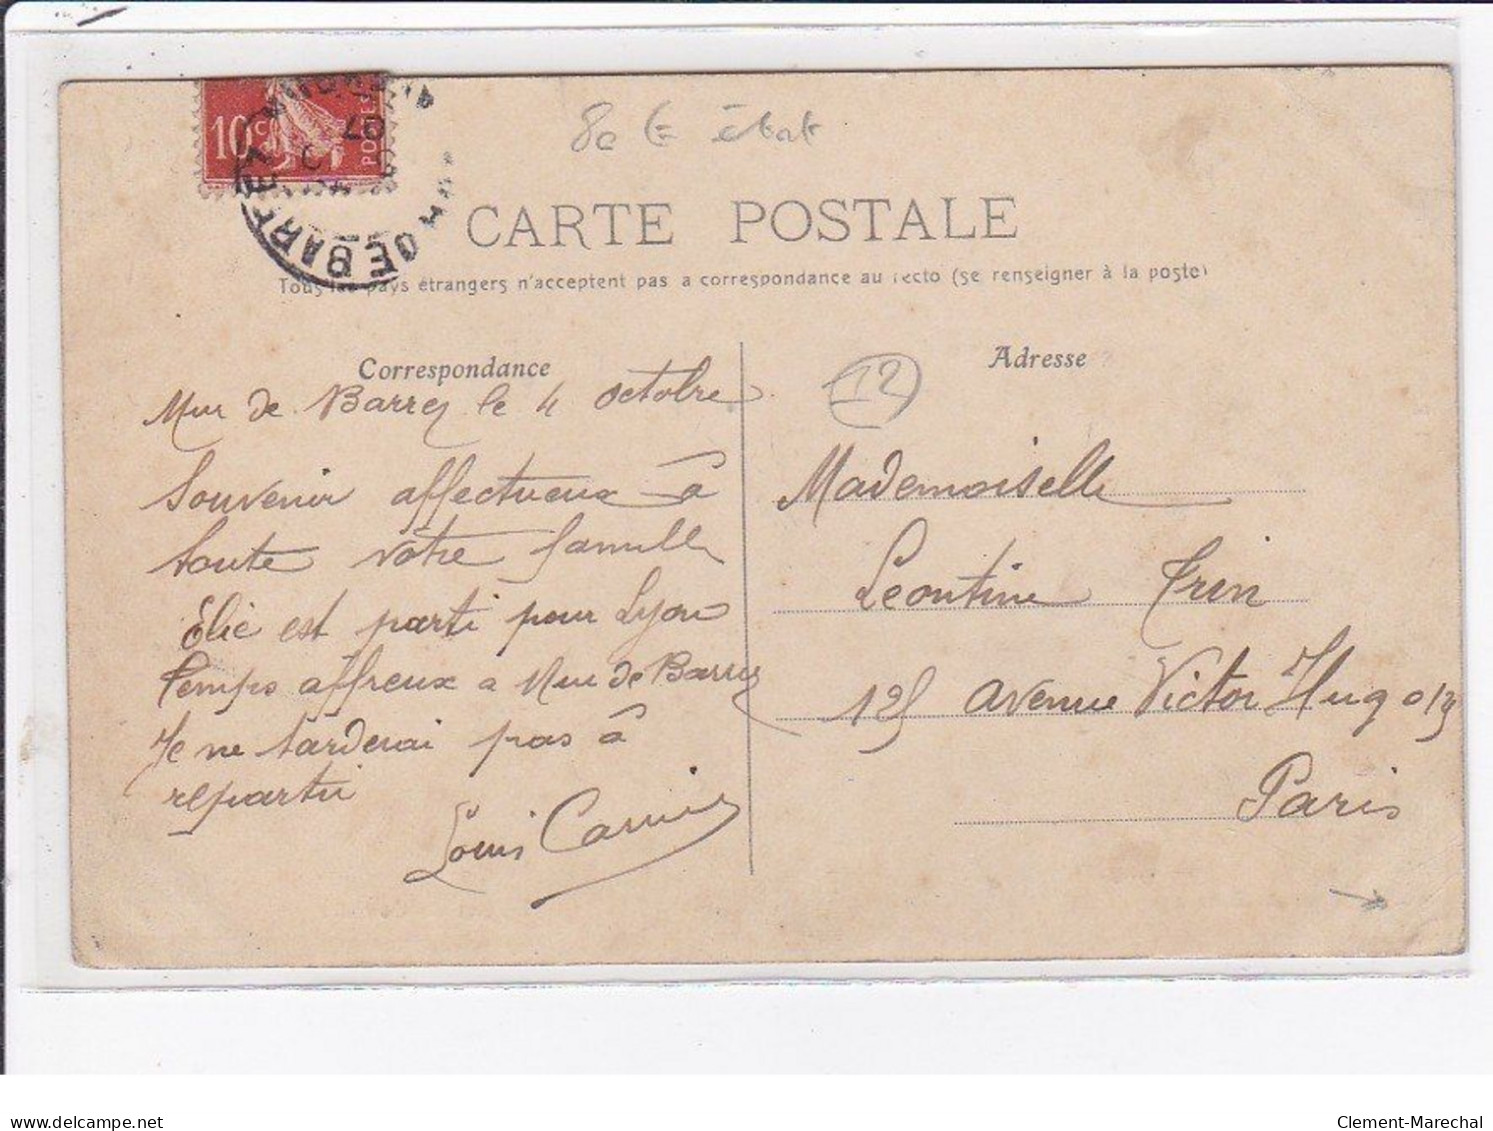 80 € état
10 c POSTES
MUR DE BARREZ
07
CARTE POSTALE
Tous les pays étrangers n'acceptent pas a correspondance au recto (se renseigner à la poste)
Correspondance
Mur de Barrez le 4 octobre
Souvenir affectueux à
toute votre famille
Elie est parti pour Lyon
Temps affreux a Mur de Barrez
Je ne tarderai pas à
repartir
Louis
Adresse
12
Mademoiselle
Leontine
125 avenue Victor Hugo
Paris
delcampe.net
Clement-Marechal